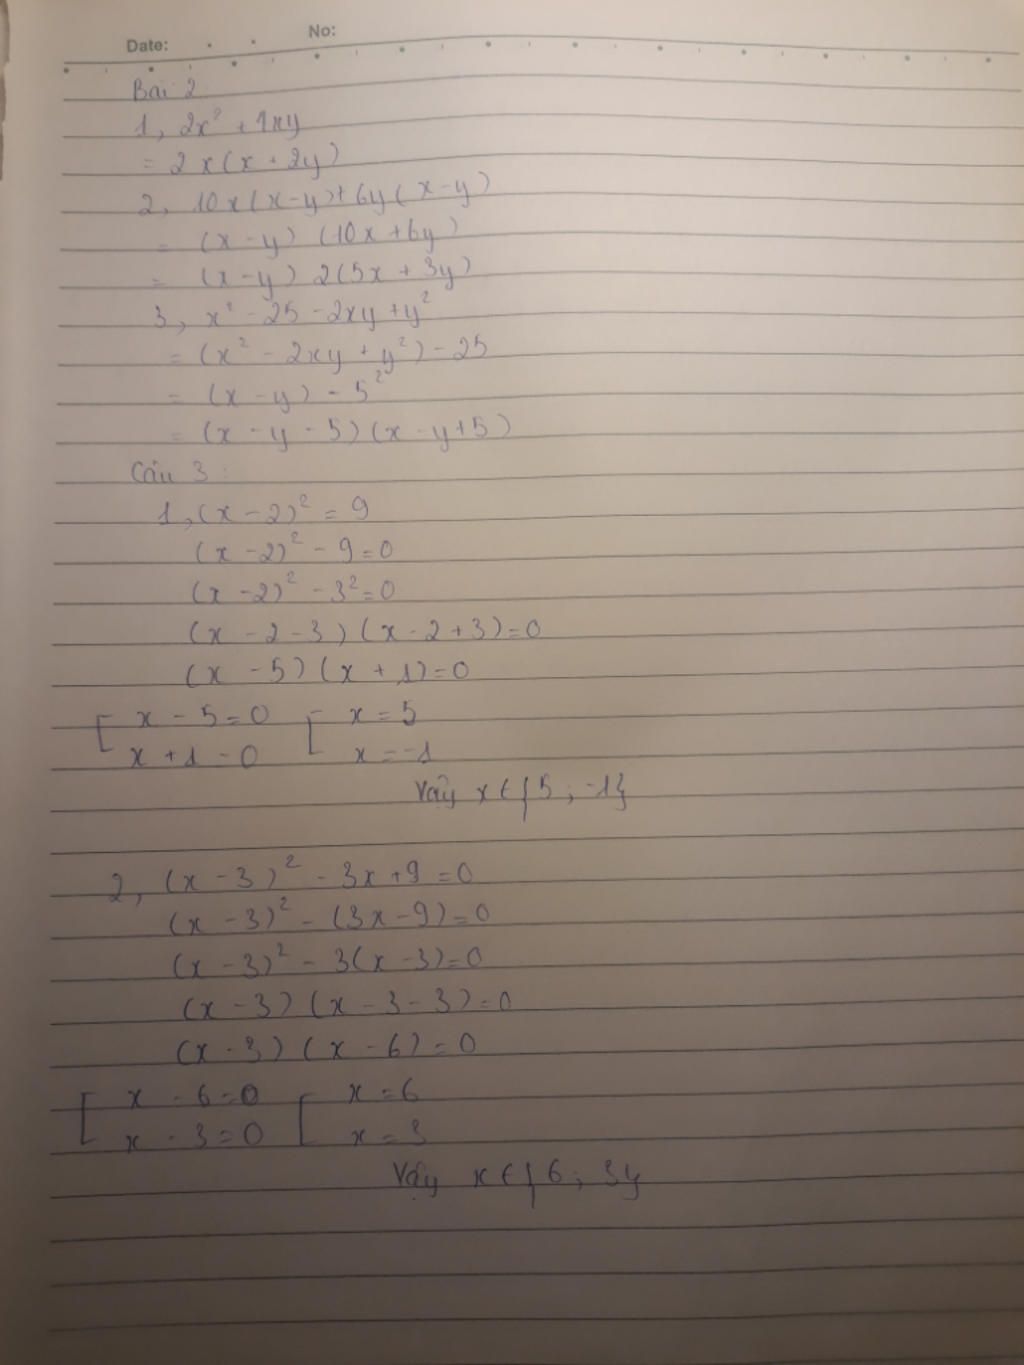 Date:
No:
Bài 2
1, 2x² + 4xy
= 2x(x + 2y)
2, 10x(x-y)+6y(x-y)
= (x-y) (10x+6y)
= (x-y) 2(5x + 3y)
3, x² - 25 - 2xy + y²
= (x² - 2xy + y²) - 25
= (x - y) - 5²
= (x - y - 5)(x - y+5)
Câu 3 :
1, (x - 2)² = 9
(x - 2)² - 9 = 0
(x - 2)² - 3² = 0
(x - 2 - 3) (x - 2 + 3) = 0
(x - 5) (x + 1) = 0
[ x - 5 = 0 [ x = 5
x + 1 = 0 x = -1
Vậy x ∈ {5 ; -1}
2, (x - 3)² - 3x + 9 = 0
(x - 3)² - (3x - 9) = 0
(x - 3)² - 3(x - 3) = 0
(x - 3) (x - 3 - 3) = 0
(x - 3) (x - 6) = 0
[ x - 6 = 0 [ x = 6
x - 3 = 0 x = 3
Vậy x ∈ {6 ; 3}